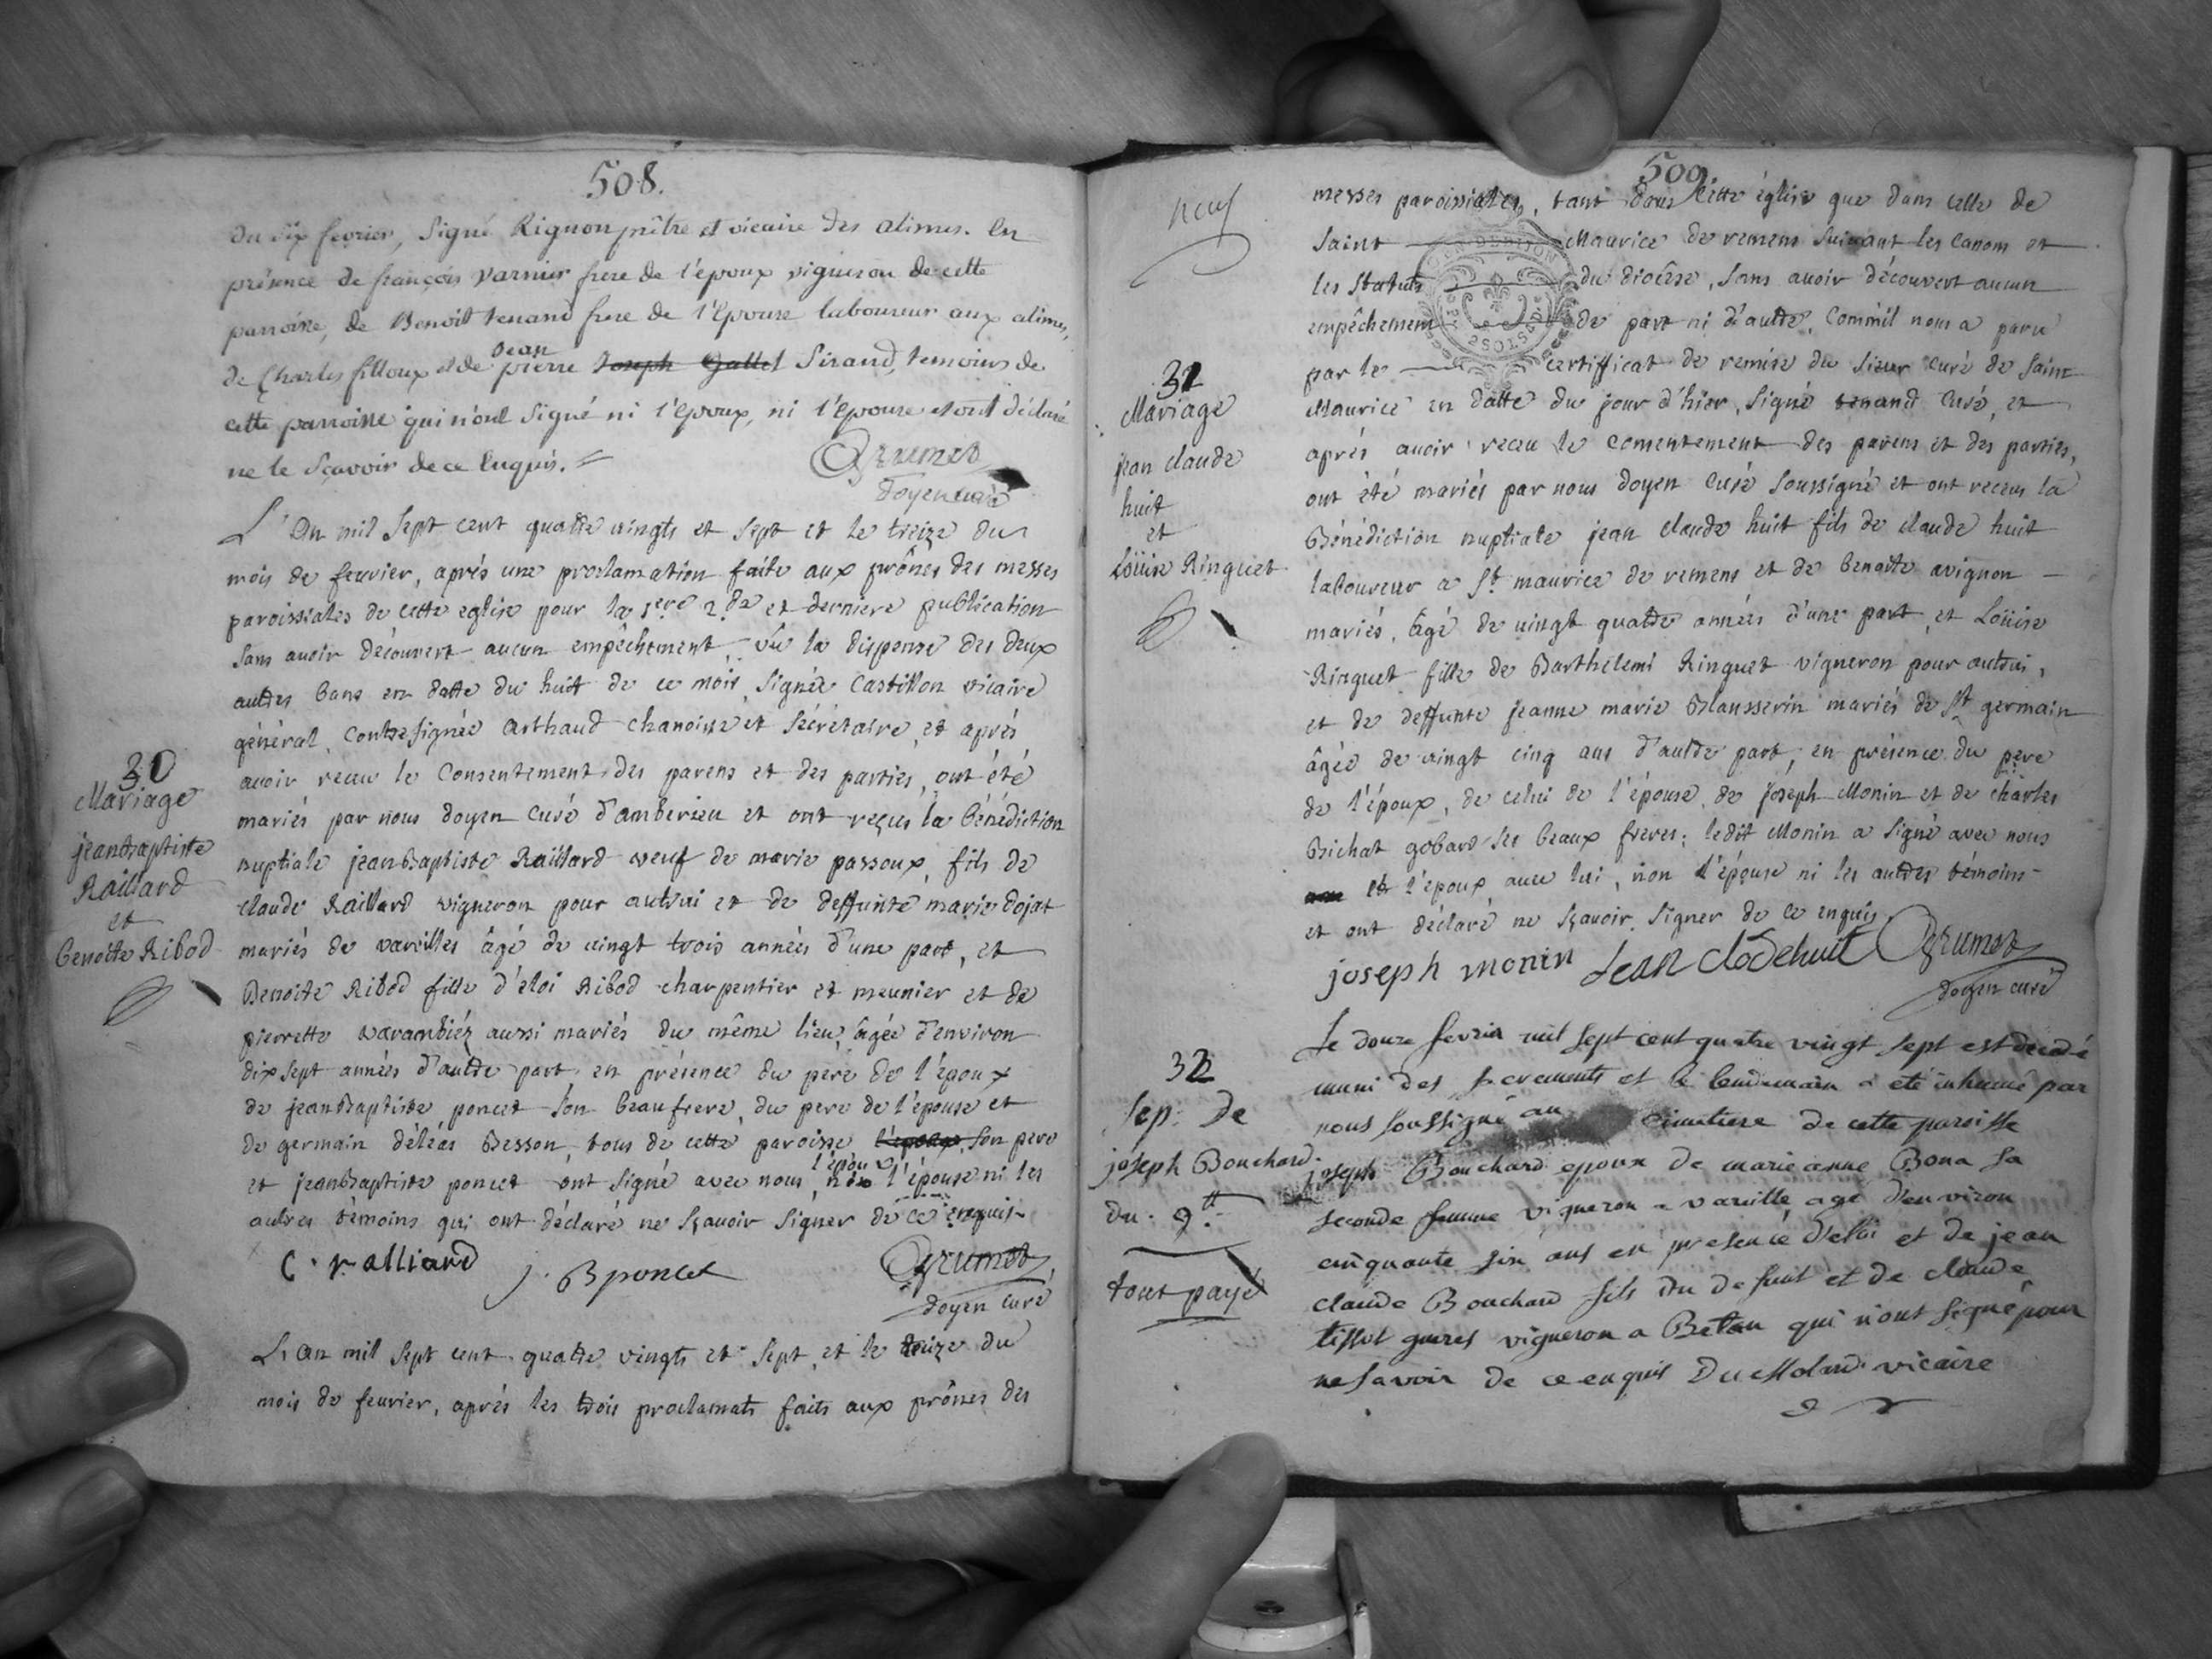 508.
du dix fevrier, signé Rignon prêtre et vicaire des alimes. En
présence de françois varnier frere de l'epoux vigneron de cette
parroisse, de Benoit tenand frere de l'Epouse laboureur aux alimes,
de Charles filloux et de Jean pierre Joseph Gallet Sirand, temoins de
cette parroisse qui n'ont signé ni l'epoux, ni l'Epouse et ont déclaré
ne le sçavoir de ce Enquis.
Grumet
doyen curé
L'an mil sept cent quatre vingts et sept et le treize du
mois de fevrier, après une proclamation faite aux prônes des messes
paroissiales de cette eglise pour la 1ere 2.de et derniere publication
sans avoir découvert aucun empêchement, vû la dispense des deux
autres bans en datte du huit de ce mois, signée Castillon vicaire
général, Contresignée arthaud chanoine et sécrétaire, et après
avoir receu le Consentement des parens et des parties, ont été
mariés par nous doyen curé d'amberieu et ont reçus la bénédiction
nuptiale jeanbaptiste Raillard veuf de marie passoux, fils de
claude Raillard vigneron pour autrui et de deffunte marie dojat
mariés de vareilles âgé de vingt trois années d'une part, et
Benoite Ribod fille d'éloi Ribod charpentier et meunier et de
pierrette varambiéz aussi mariés du même lieu, âgée d'environ
dix sept années d'autre part, en présence du pere de l'époux
de jeanbaptiste poncet son beaufrere, du pere de l'épouse et
de germain déléas Besson, tous de cette paroisse l'époux, son pere
et jeanbaptiste poncet ont signé avec nous, l'époux non l'épouse ni les
autres témoins qui ont déclaré ne sçavoir signer de ce enquis
30
Mariage
jeanbaptiste
Raillard
et
benoite Ribod
C. ralliard
j. B poncet
Grumet
doyen curé
L'an mil sept cent quatre vingts et sept, et le treize du
mois de fevrier, après les trois proclamats faits aux prônes des
509
neuf
messes paroissiales, tant dans cette église que dans celle de
saint Maurice de remens suivant les canons et
les statuts du diocêse, sans avoir découvert aucun
empêchement de part ni d'autre, Comm'il nous a paru
par le certifficat de remise du sieur curé de saint
Maurice en datte du jour d'hier, signé tenand curé, et
après avoir receu le consentement des parens et des parties,
ont été mariés par nous doyen curé soussigné et ont receus la
Bénédiction nuptiale jean claude huit fils de claude huit
laboureur a St. maurice de remens et de benoite avignon
mariés, âgé de vingt quatre années d'une part, et Loüise
Ringuet fille de Barthelemi Ringuet vigneron pour autrui,
et de deffunte jeanne marie Blansserin mariés de St germain
âgée de vingt cinq ans d'autre part, en présence du pere
de l'époux, de celui de l'épouse, de joseph Monin et de charles
Bichat gobard ses beaux freres: ledit Monin a signé avec nous
et l'époux avec lui, non l'épouse ni les autres témoins
et ont déclaré ne sçavoir signer de ce enquis
31
Mariage
jean claude
huit
et
Loüise Ringuet
joseph monin Jean clode huit Grumet
doyen curé
Le douze fevrier mil sept cent quatre vingt sept est decedé
muni des sacrements et le lendemain a été inhumé par
nous soussigné au cimetiere de cette paroisse
joseph Bouchard epoux de marie anne Bona sa
seconde femme vigneron a vareille, agé d'environ
cinquante six ans en presence d'eloi et de jean
claude Bouchard fils du defunt et de claude
tissot guires vigneron a Betan qui n'ont signé pour
ne savoir de ce enquis Du Molard vicaire
32
Sep. de
joseph Bouchard
du 9.tt
tout payé